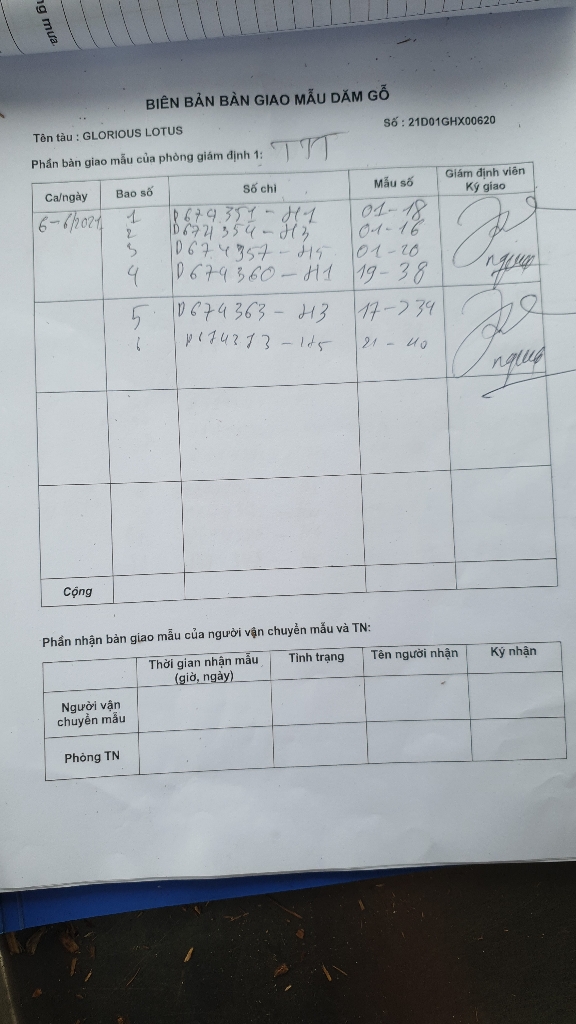 ng mưa
BIÊN BẢN BÀN GIAO MẪU DĂM GỖ
Tên tàu : GLORIOUS LOTUS
Số : 21D01GHX00620
Phần bàn giao mẫu của phòng giám định 1: TTT
Ca/ngày Bao số Số chì Mẫu số Giám định viên Ký giao
6-6/2021 1 D674351-H1 01-18
2 D674354-H3 01-16
3 D674357-H5 01-20
4 D674360-H1 19-38
5 D674363-H3 17->34
6 21-40
Cộng
Phần nhận bàn giao mẫu của người vận chuyển mẫu và TN:
Thời gian nhận mẫu (giờ, ngày) Tình trạng Tên người nhận Ký nhận
Người vận chuyển mẫu
Phòng TN